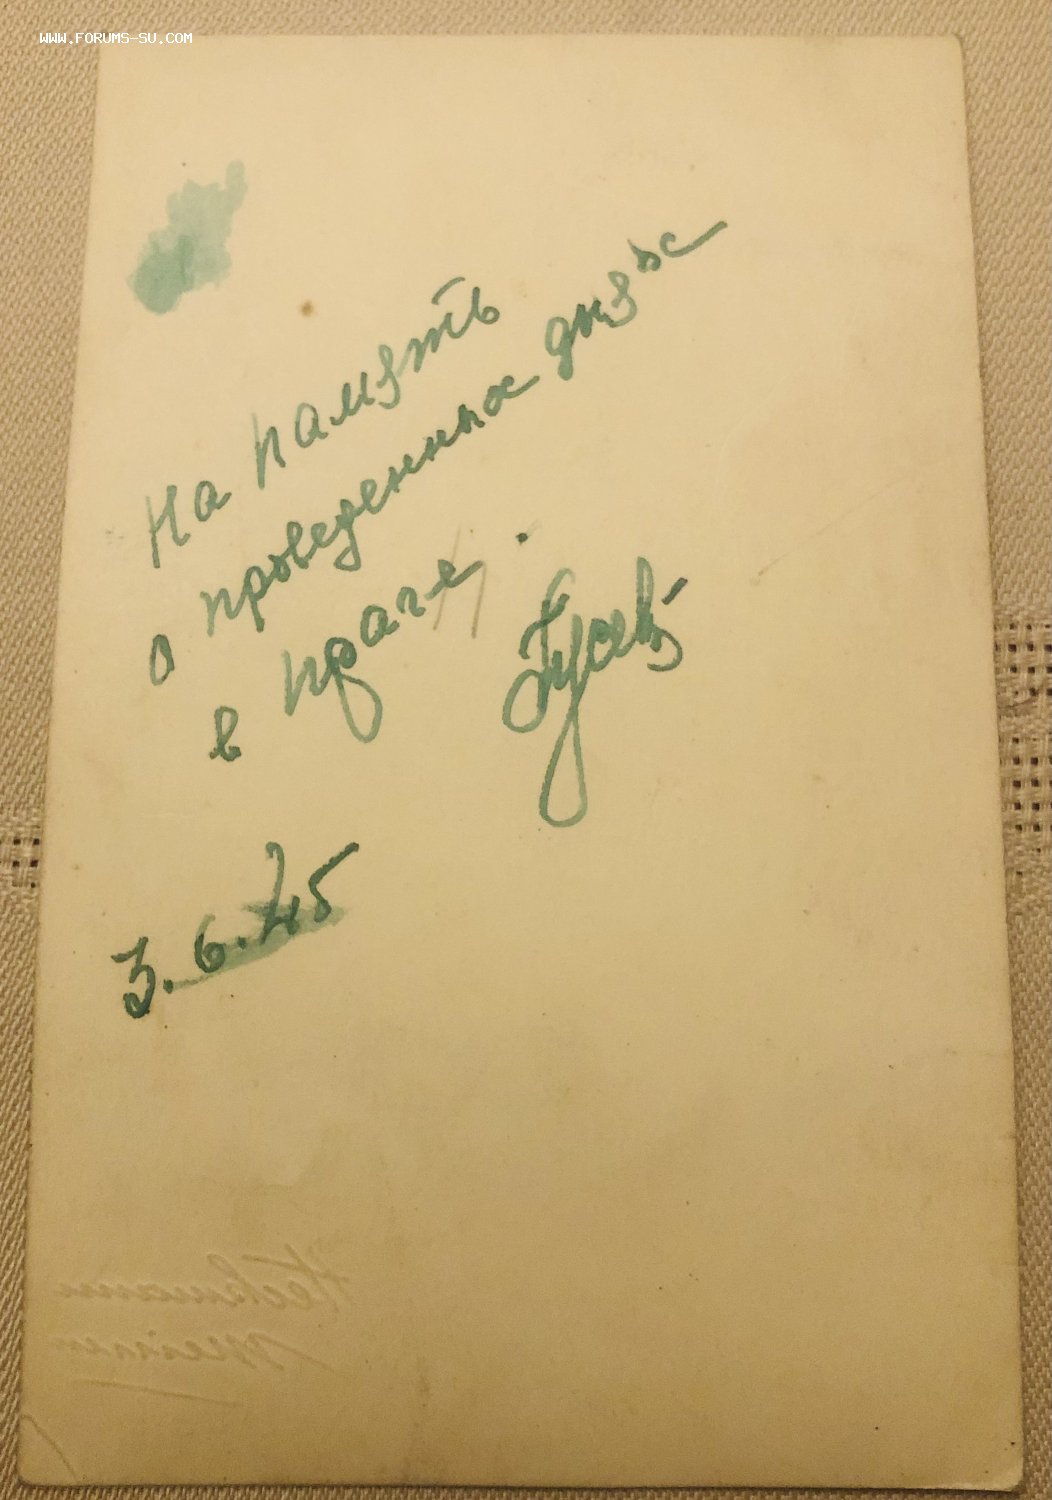 WWW.FORUMS-SU.COM
На память
о проведенных днях
в праге.
Гусев
3.6.45